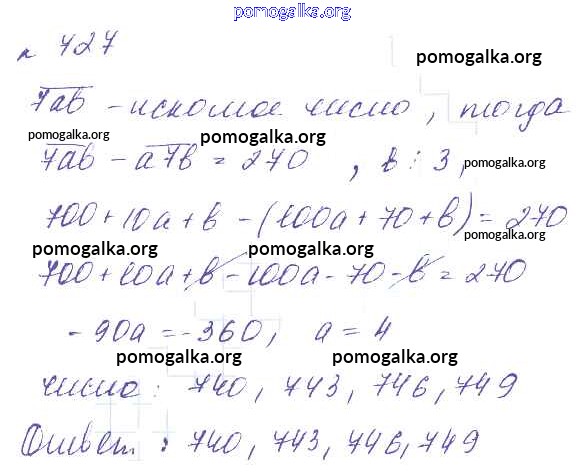 pomogalka.org
№ 427
pomogalka.org
7ab - искомое число, тогда
pomogalka.org pomogalka.org
7ab - a7b = 270, b ⋮ 3, pomogalka.org
700 + 10a + b - (100a + 70 + b) = 270
pomogalka.org pomogalka.org pomogalka.org
700 + 10a + b - 100a - 70 - b = 270
- 90a = -360, a = 4
pomogalka.org pomogalka.org
число: 740, 743, 746, 749
pomogalka.org
Ответ: 740, 743, 746, 749